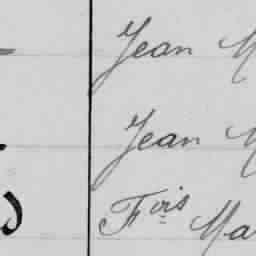 Jean M
Jean M
Fois Ma